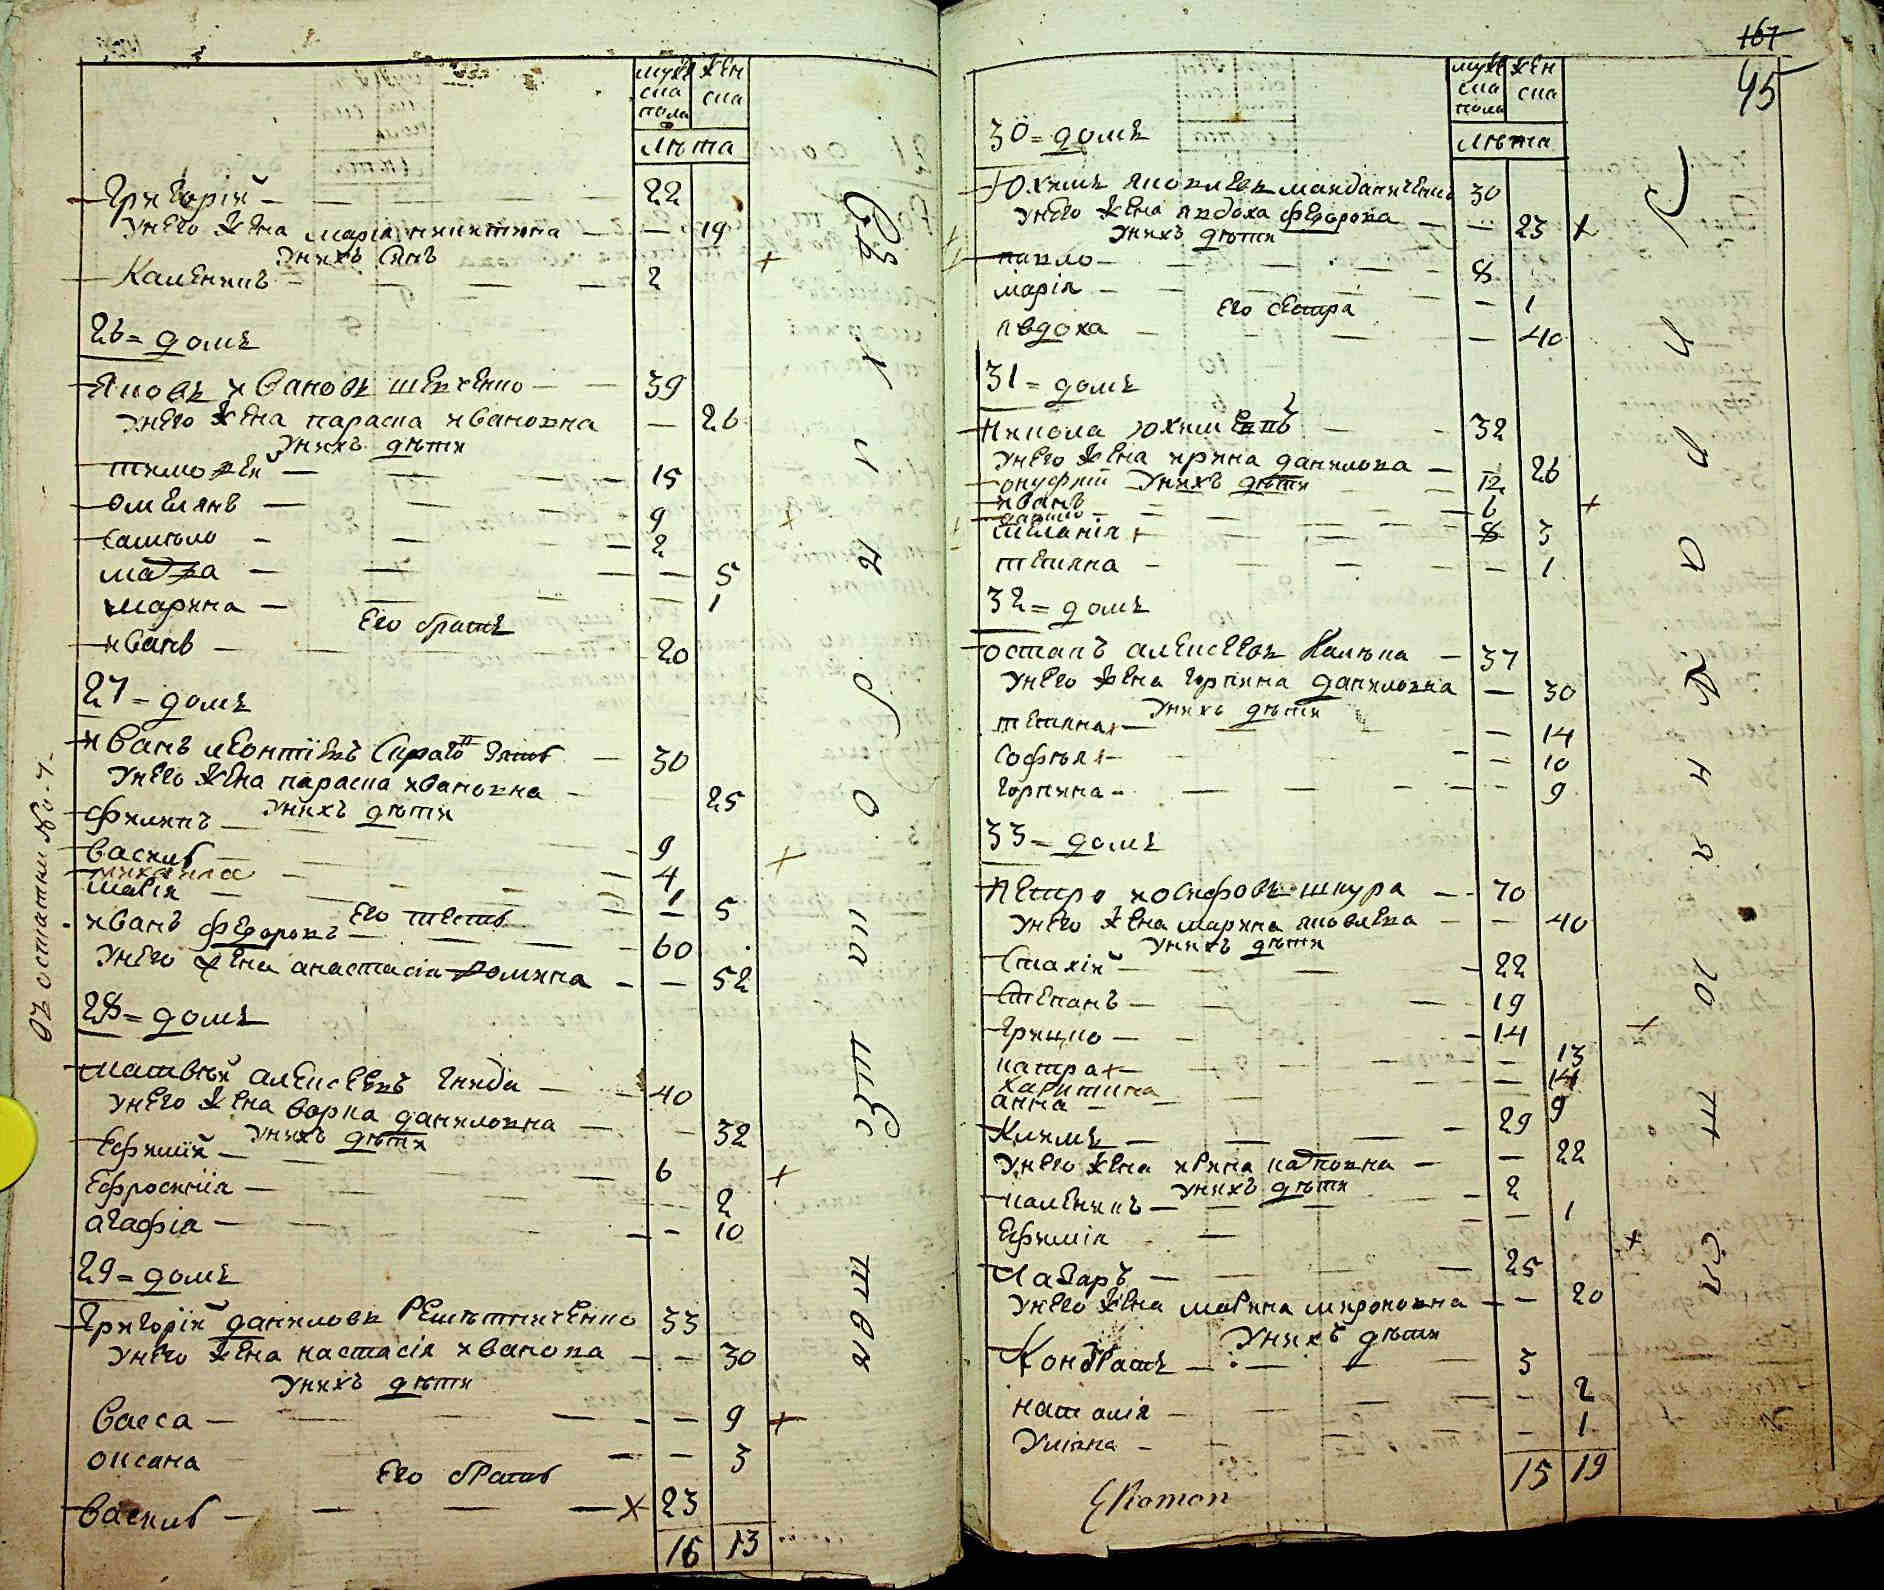 муж ска пола
жен ска
лѣта
Григорій 22
Унего жена марія никитина 19
Унихъ синъ
Каленикъ 2
26 = домъ
Яковъ ивановъ шевченко 39
унего жена параска ивановна 26
Унихъ дѣти
тимофей 15
омелянъ 9
самойло 2
мотра 5
марина 1
Его братъ
иванъ 20
27 = домъ
иванъ леонтіевъ 30
Унего жена параска ивановна 25
Унихъ дѣти
филипъ 9
василь 4
михайла 1
марія 5
Его тесть
иванъ федоровъ 60
Унего жена анастасія фомина 52
28 = домъ
матвѣй алексеевъ гнида 40
Унего жена варка даниловна 32
Унихъ дѣти
Ефимій 6
Ефросинія 2
агафія 10
29 = домъ
Григорій даниловъ Решетниченко 33
Унего жена настасія иванова 30
Унихъ дѣти
васса 9
оксана 3
Его братъ
василь 23
16 13
Въ остатки № 7
167
45
муж ска пола
жен ска
лѣта
30 = домъ
Юхимъ яковлевъ майданиченко 30
Унего жена явдоха федорова 23
Унихъ дѣти
павло 8
марія 1
Его сестра
явдоха 40
31 = домъ
никола юхимевъ 32
Унего жена ирина данилова 26
Унихъ дѣти
онуфрій 12
иванъ 6
меланія 3
тетяна 1
32 = домъ
остапъ алексеевъ Калѣка 37
Унего жена горпина даниловна 30
Унихъ дѣти
тетяна 14
Софія 10
горпина 9
33 = домъ
Петро иосифовъ шкура 70
Унего жена марина яковлева 40
Унихъ дѣти
Стахій 22
Степанъ 19
Грицко 14
катра 13
харитина 14
анна 9
Климъ 29
Унего жена ирина карповна 22
Унихъ дѣти
каленикъ 2
Ефимія 1
Лазаръ 25
Унего жена марина мироновна 20
Унихъ дѣти
Кондратъ 3
наталія 2
Уляна 1
15 19